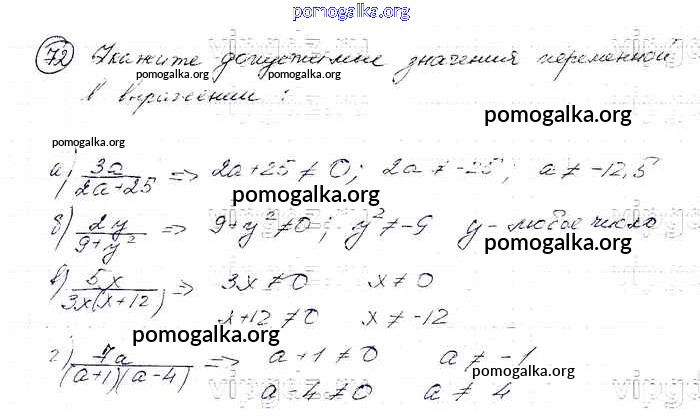 pomogalka.org
72 Укажите допустимые значения переменной
pomogalka.org
в выражении:
pomogalka.org
pomogalka.org
а) 3a/(2a+25) => 2a+25 ≠ 0; 2a ≠ -25; a ≠ -12,5
pomogalka.org
б) 2y/(9+y²) => 9+y² ≠ 0; y² ≠ -9 y - любое число
в) 5x/(3x(x+12)) => 3x ≠ 0 x ≠ 0
x+12 ≠ 0 x ≠ -12
pomogalka.org
г) 7a/((a+1)(a-4)) => a+1 ≠ 0 a ≠ -1
pomogalka.org
a-4 ≠ 0 a ≠ 4